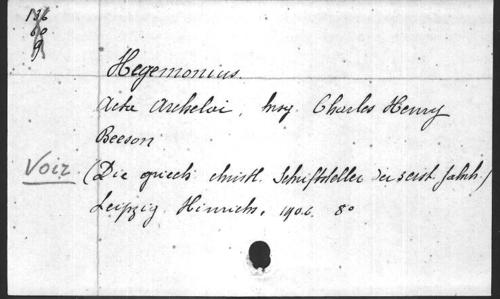 136
60
9
Hegemonius.
Acta Archelai, hrsg. Charles Henry
Beeson
Voir (Die griech. christl. Schriftsteller der erst. Jahrh.)
Leipzig Hinrichs, 1906. 8°